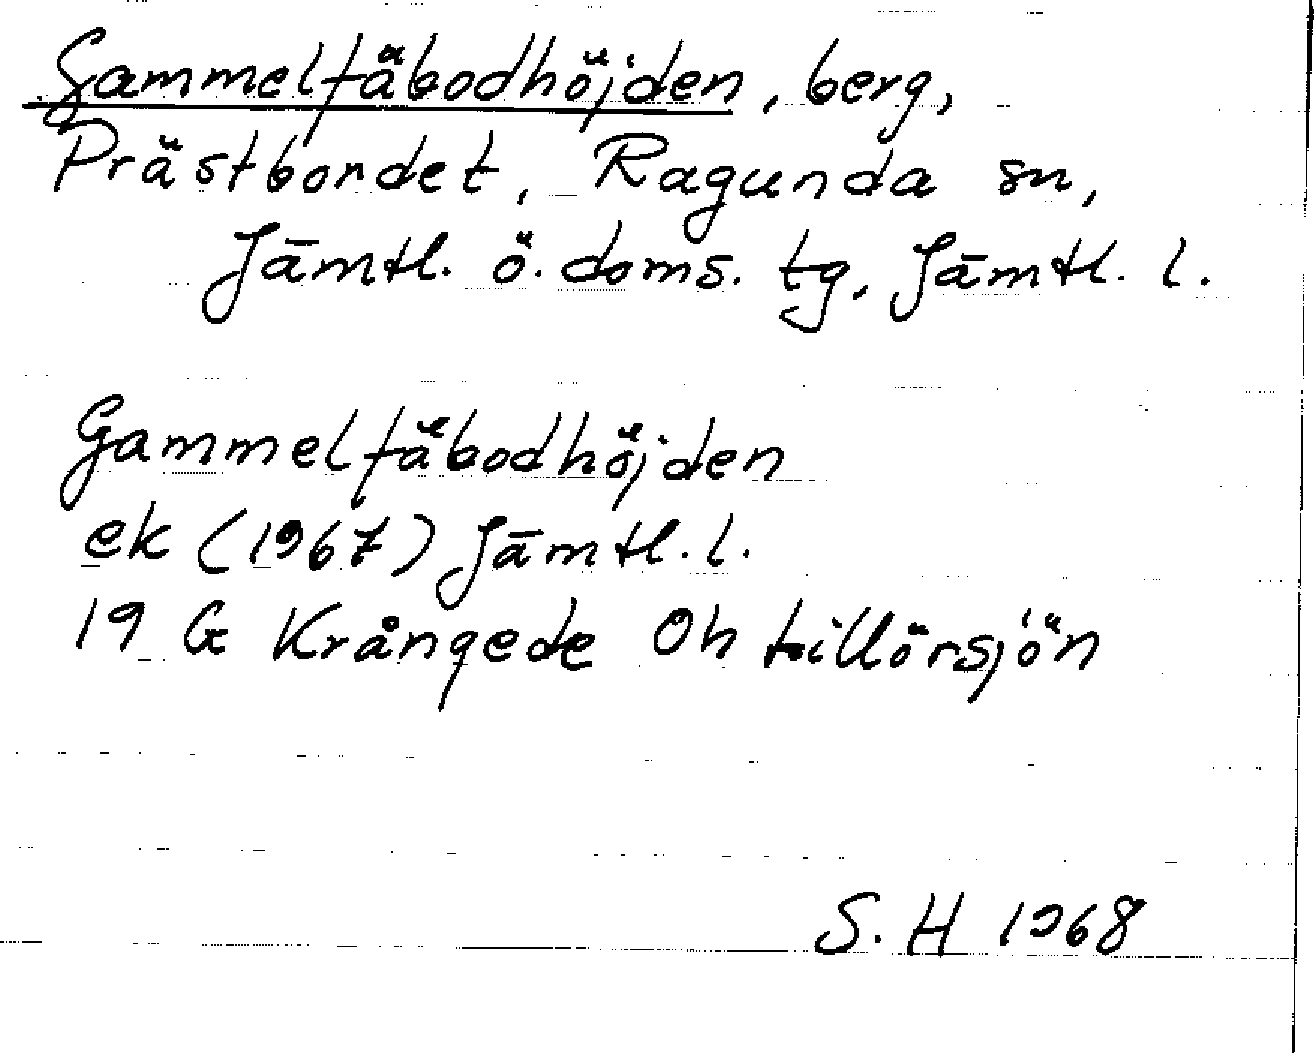 Gammelfäbodhöjden, berg,
Prästbordet, Ragunda sn,
Jämtl. ö. doms. tg, Jämtl. l.
Gammelfäbodhöjden
ek (1967) Jämtl. l.
19 G Krångede Oh tillörsjön
S. H 1968